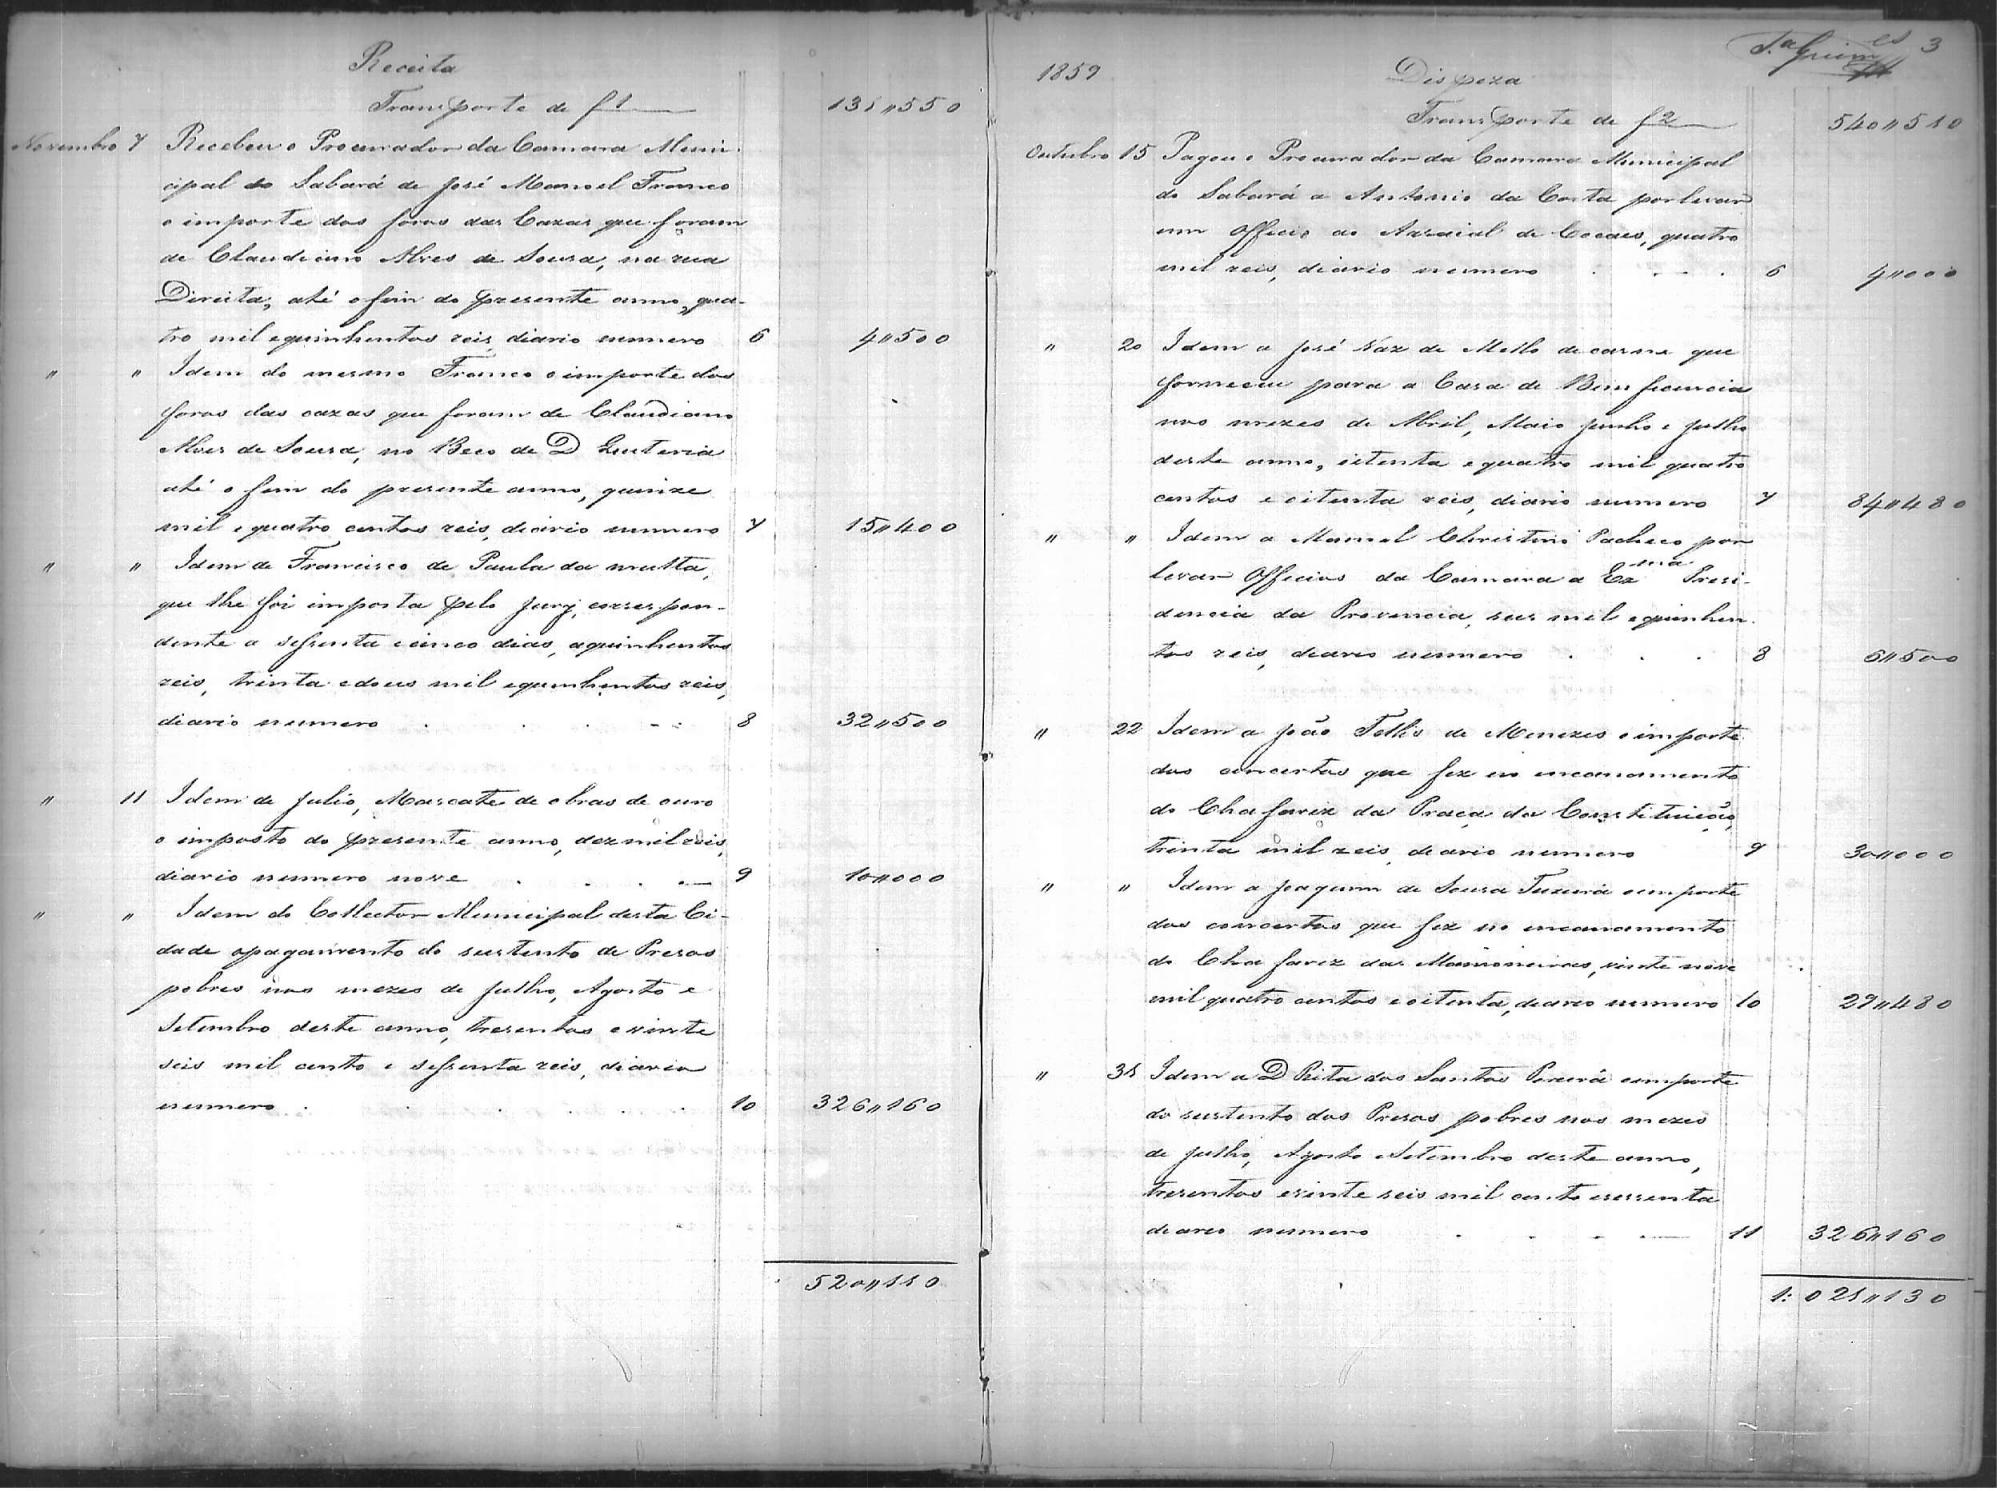 Receita
Transporte de f 1 131,,550
Novembro 7 Recebeu o Procurador da Camara Muni-
cipal do Sabará de José Manoel Franco
o importe dos foros das Cazas que foram
de Claudiano Alves de Sousa, na rua
Direita, até o fim do presente anno, qua-
tro mil equinhentos reis, diario numero 6 4,,500
" " Idem do mesmo Franco o importe dos
foros das cazas que foram de Claudiano
Alves de Sousa, no Beco de D Euteria
até o fim do presente anno, quinze
mil e quatro centos reis, diario numero 7 15,,400
" " Idem de Francisco de Paula da multa,
que lhe foi imposta pelo Jury, correspon-
dente a sessenta e cinco dias, aquinhentos
reis, trinta edous mil equinhentos reis,
diario numero 8 32,,500
" 11 Idem de Julio, Mascate de obras de ouro
o imposto do presente anno, dez mil reis,
diario numero nove 9 10,,000
" " Idem do Collector Municipal desta Ci-
dade opagamento do sustento de Presos
pobres nos mezes de Julho, Agosto e
Setembro deste anno, tresentos e vinte
seis mil cento e sessenta reis, diario
numero 10 326,,160
520,,110
3
1859 Dispeza
Transporte de f 2 540,,510
Outubro 15 Pagou o Procurador da Camara Municipal
do Sabará a Antonio da Costa por levar
um Officio ao Arraial de Cocaes, quatro
mil reis, diario numero 6 4,,000
" 20 Idem a José Vaz de Mello de carne que
forneceu para a Casa de Beneficencia
nos mezes de Abril, Maio Junho e Julho
deste anno, oitenta e quatro mil quatro
centos e oitenta reis, diario numero 7 84,,480
" " Idem a Manoel Christino Pacheco por
levar Officios da Camara a Exma Presi-
dencia da Provincia, seis mil equinhen-
tos reis, diario numero 8 6,,500
" 22 Idem a João Tellis de Menezes o importe
dos concertos que fez no encanamento
do Chafariz da Praça da Constituição,
trinta mil reis, diario numero 9 30,,000
" " Idem a Joaquim de Sousa Teixeira o importe
dos concertos que fez no encanamento
do Chafariz das Mamoneiras, vinte nove
mil quatro centos e oitenta, diario numero 10 29,,480
" 31 Idem a D Rita dos Santos Pereira o importe
do sustento dos Presos pobres nos mezes
de Julho, Agosto e Setembro deste anno,
tresentos evinte seis mil cento esessenta
diario numero 11 326,,160
1:021,,130